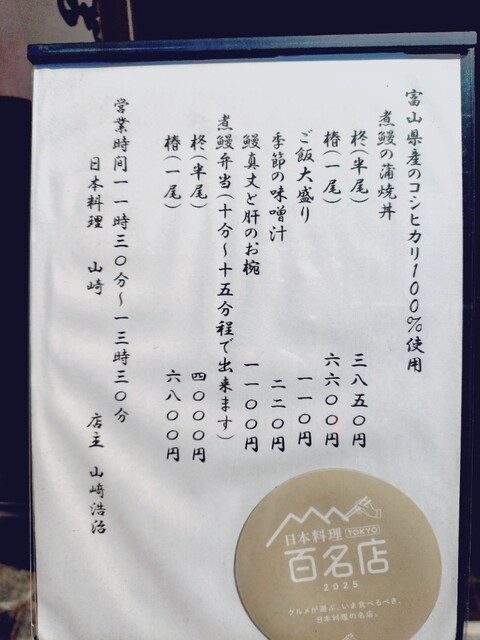 富山県産のコシヒカリ100%使用
煮鰻の蒲焼丼
柊(半尾) 三八五〇円
椿(一尾) 六六〇〇円
ご飯大盛り 一一〇円
季節の味噌汁 二二〇円
鰻真丈と肝のお椀 一一〇〇円
煮鰻弁当(十分〜十五分程で出来ます)
柊(半尾) 四〇〇〇円
椿(一尾) 六八〇〇円
営業時间一一時三〇分〜一三時三〇分
日本料理 山崎 店主 山崎浩治
日本料理 TOKYO
百名店
2025
グルメが選ぶ、いま食べるべき、
日本料理の名店。